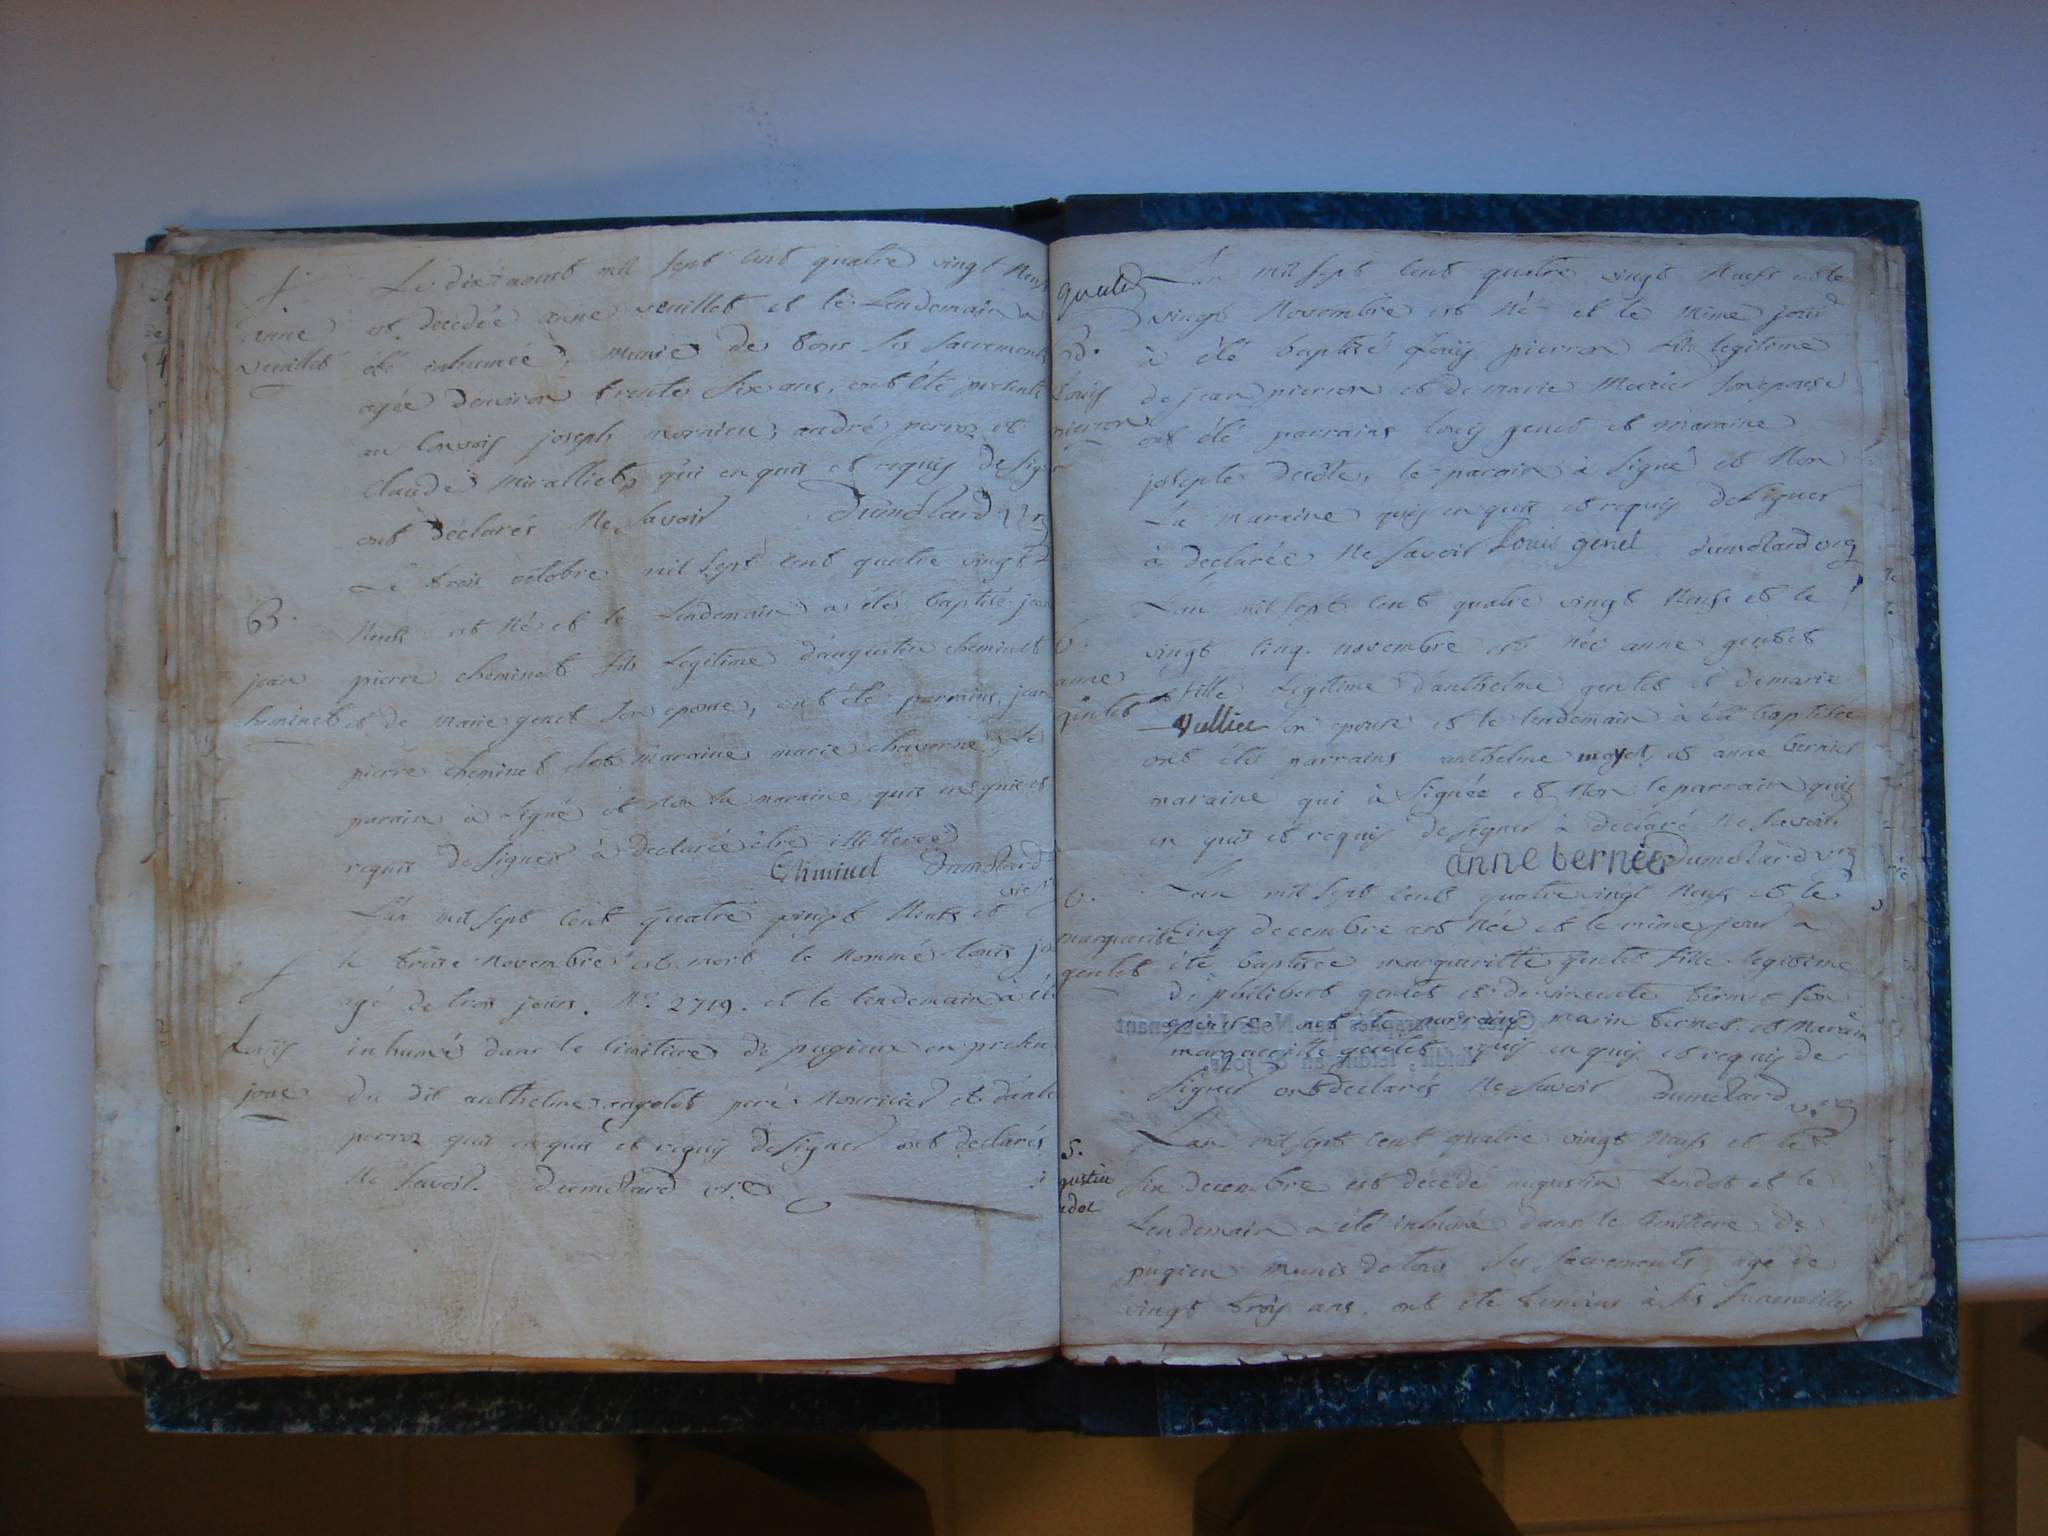 S.
anne
veuillet
Le dix aoust mil sept cent quatre vingt neuf
est decedée anne veuillet et le Lendemain a
été inhumée, munie de tous ses sacrements
agée d'environ trente six ans, ont été presents
au Convois joseph mornieu, andré perroz et
Claude miralliet, qui enquis et requis de signer
ont declarés Ne Savoir Dumolard vic
B.
jean
cheminet
Le trois octobre mil sept cent quatre vingt
Neuf est Né et le Lendemain a étés baptisé jean
pierre cheminet fils Legitime d'augustin cheminet
et de marie genet son epouse, ont été parrains jean
pierre cheminet et maraine marie chaverne, le
parain à signé et non la maraine, quis enquis et
requis de signer à declarée être illitterée
Chiminet Dumolard
vic
S
Louis
jone
L'an mil sept cent quatre vingt Neufs et
le treise novembre est mort le nommé Louis jo
agé de trois jours. N° 2719. et le lendemain à été
inhumé dans le cimitiere de pugieux en presence
du dit anthelme angelot pere nourricier et d'ant
perroz quis enquis et requis de signer ont declarés
Ne Savoir. Dumolard vic
Louis
pierron
L'an mil sept cent quatre vingt Neufs et le
vingt Novembre est Né et le même jour
à été baptisé Louis pierron fils legitime
de jean pierron et de marie Mercier son epouse
ont été parrains Louis genet et maraine
josepte decôte, le parain à signé et Non
La maraine quis enquis et requis de signer
à declarée Ne Savoir Louis genet Dumolard vic
B.
anne
gentet
L'an mil sept cent quatre vingt Neufs et le
vingt cinq novembre est née anne gentet
fille Legitime d'anthelme gentet et de marie
Vulliee son epouse et le lendemain à été baptisée
ont étés parrains anthelme moyet, et anne bernier
maraine qui à signée et Non le parrain quis
en quis et requis de signer à declaré Ne Savoir
anne bernier Dumolard vic
B.
marguerite
gentet
L'an mil sept cent quatre vingt Neufs et le
cinq decembre est Née et le même jour a
été baptisée marguerite gentet fille legitime
de philibert gentet et de vincente termet son
epouse ont été parrains marin termet et maraine
marguerite gentet quis enquis et requis de
signer ont declarés Ne Savoir Dumolard vic
S.
gustin
ndot
L'an mil sept cent quatre vingt Neufs et le
six decembre est décédé augustin Lendot et le
Lendemain a été inhumé dans le cimitiere de
pugieu munis de tous ses sacrements agé de
vingt trois ans, ont été temoins à ses funerailles